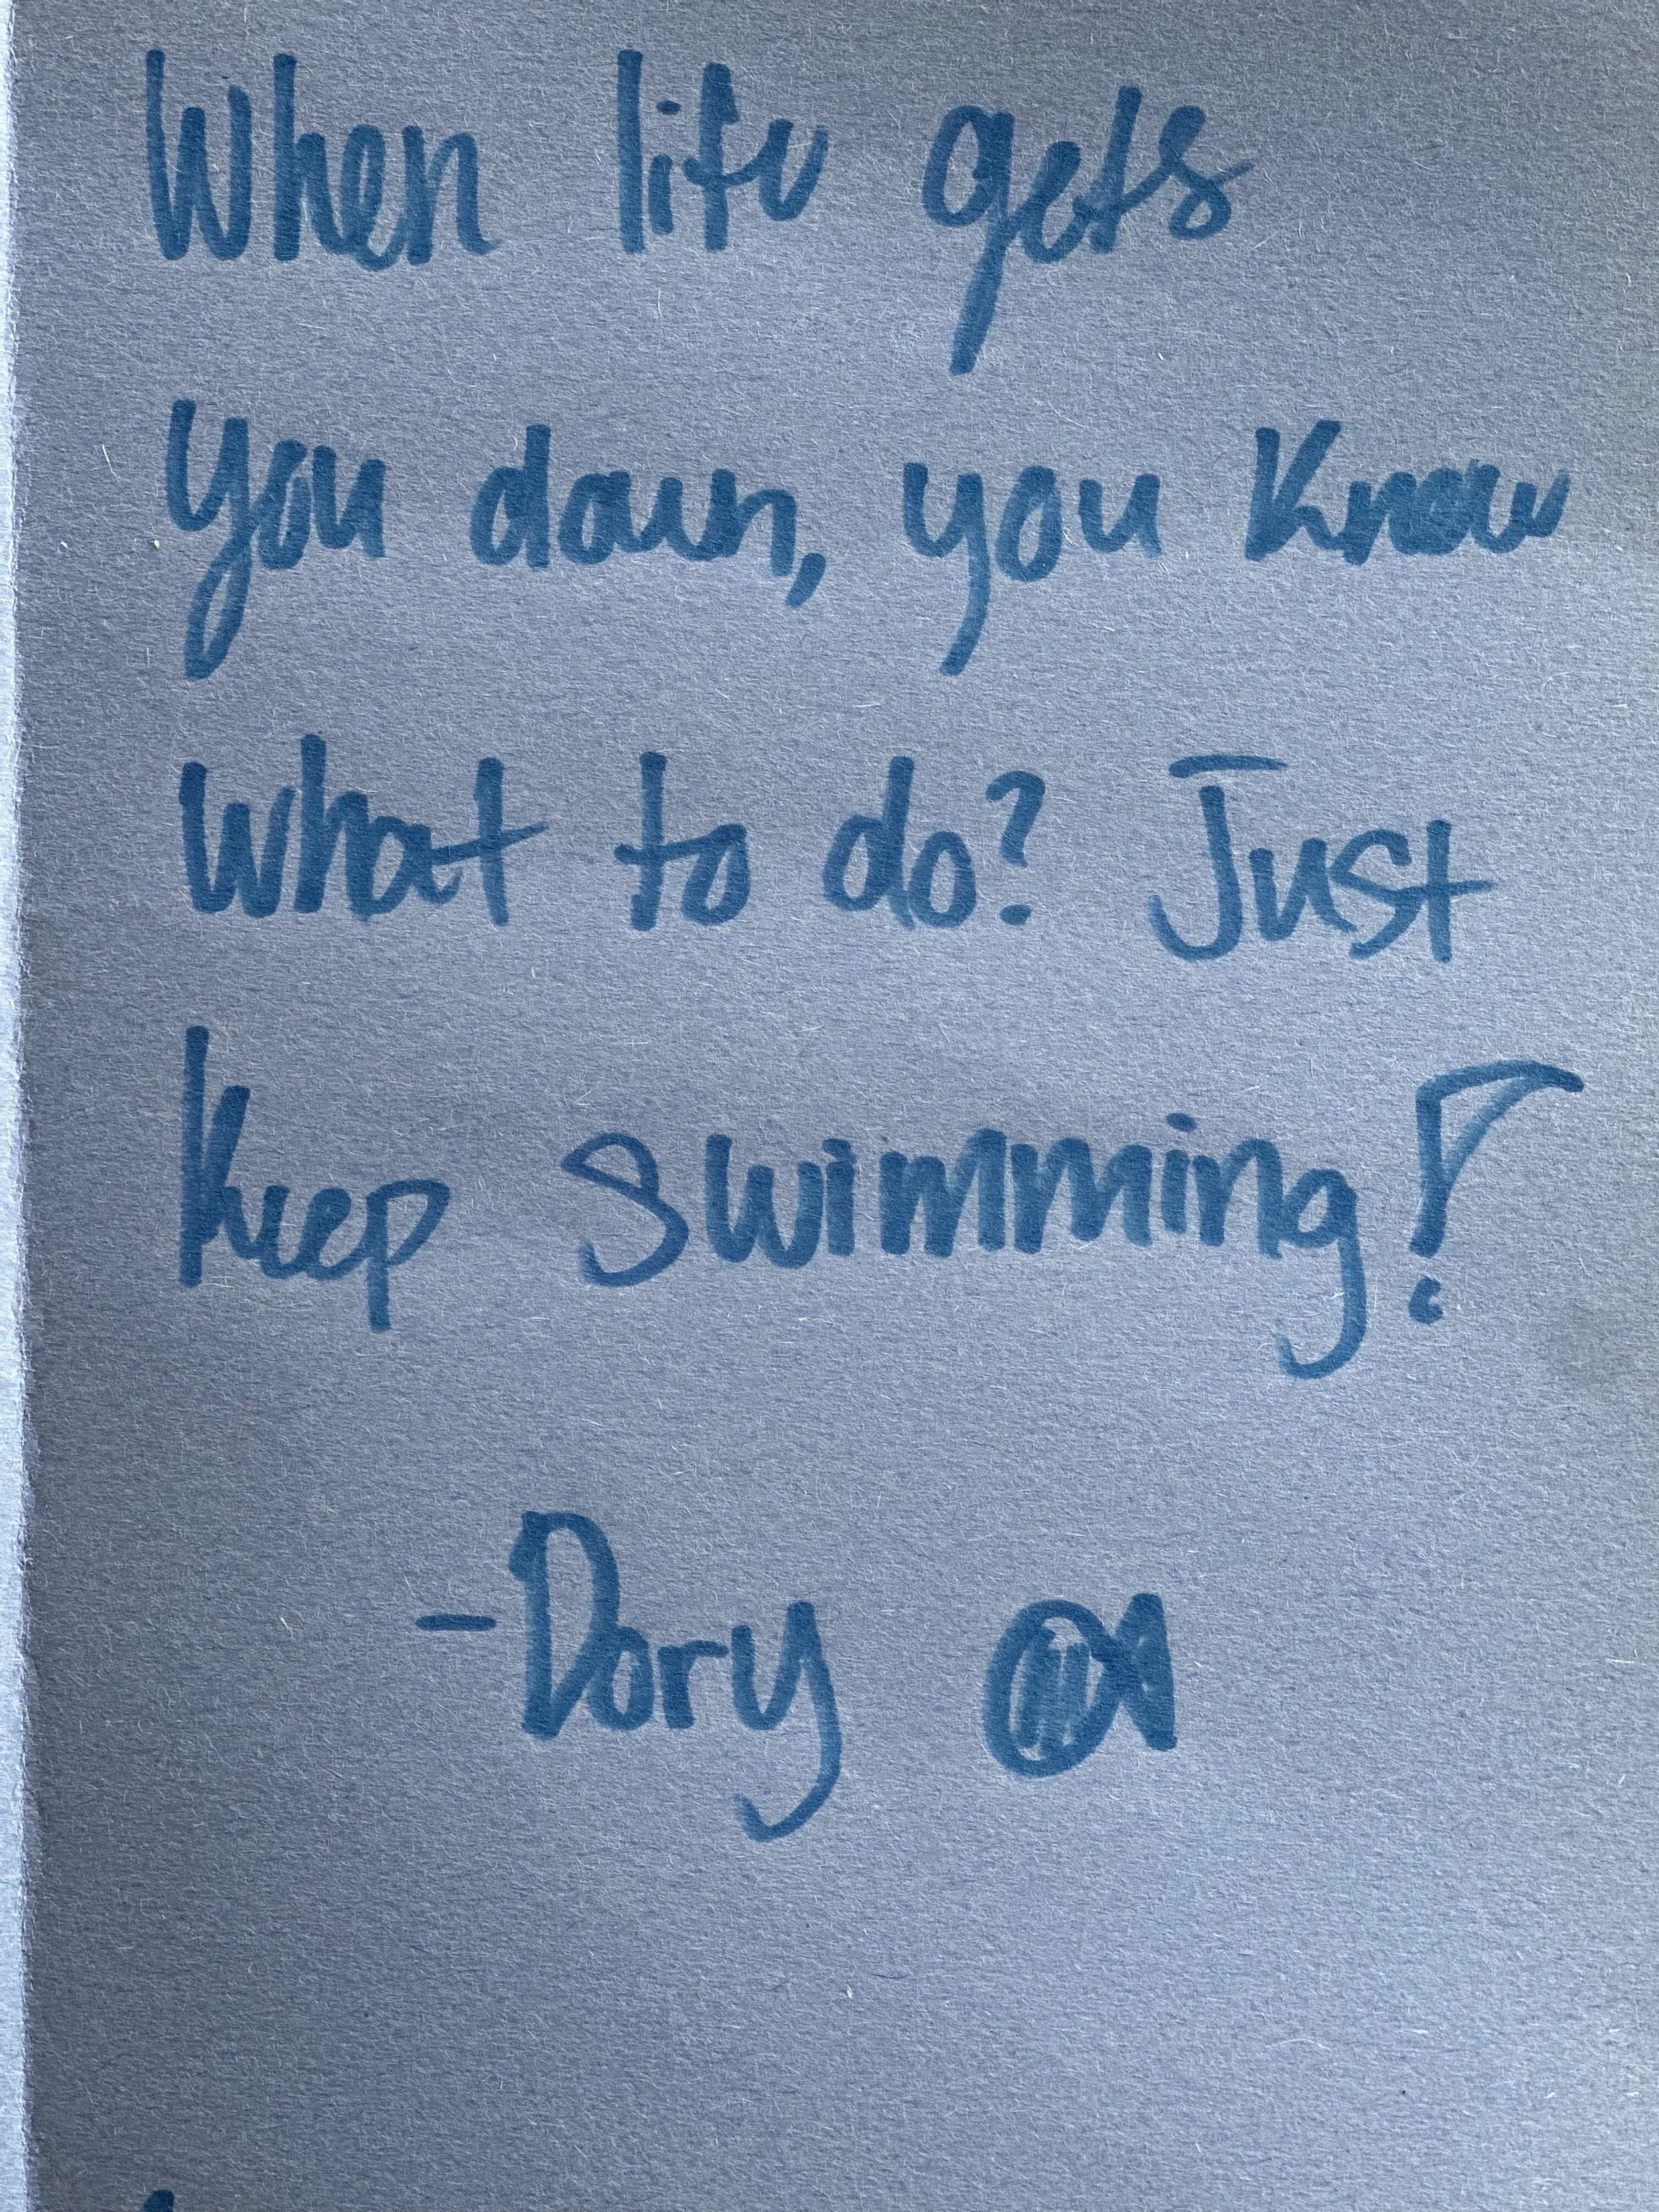 When life gets
you down, you know
what to do? Just
keep swimming!
-Dory